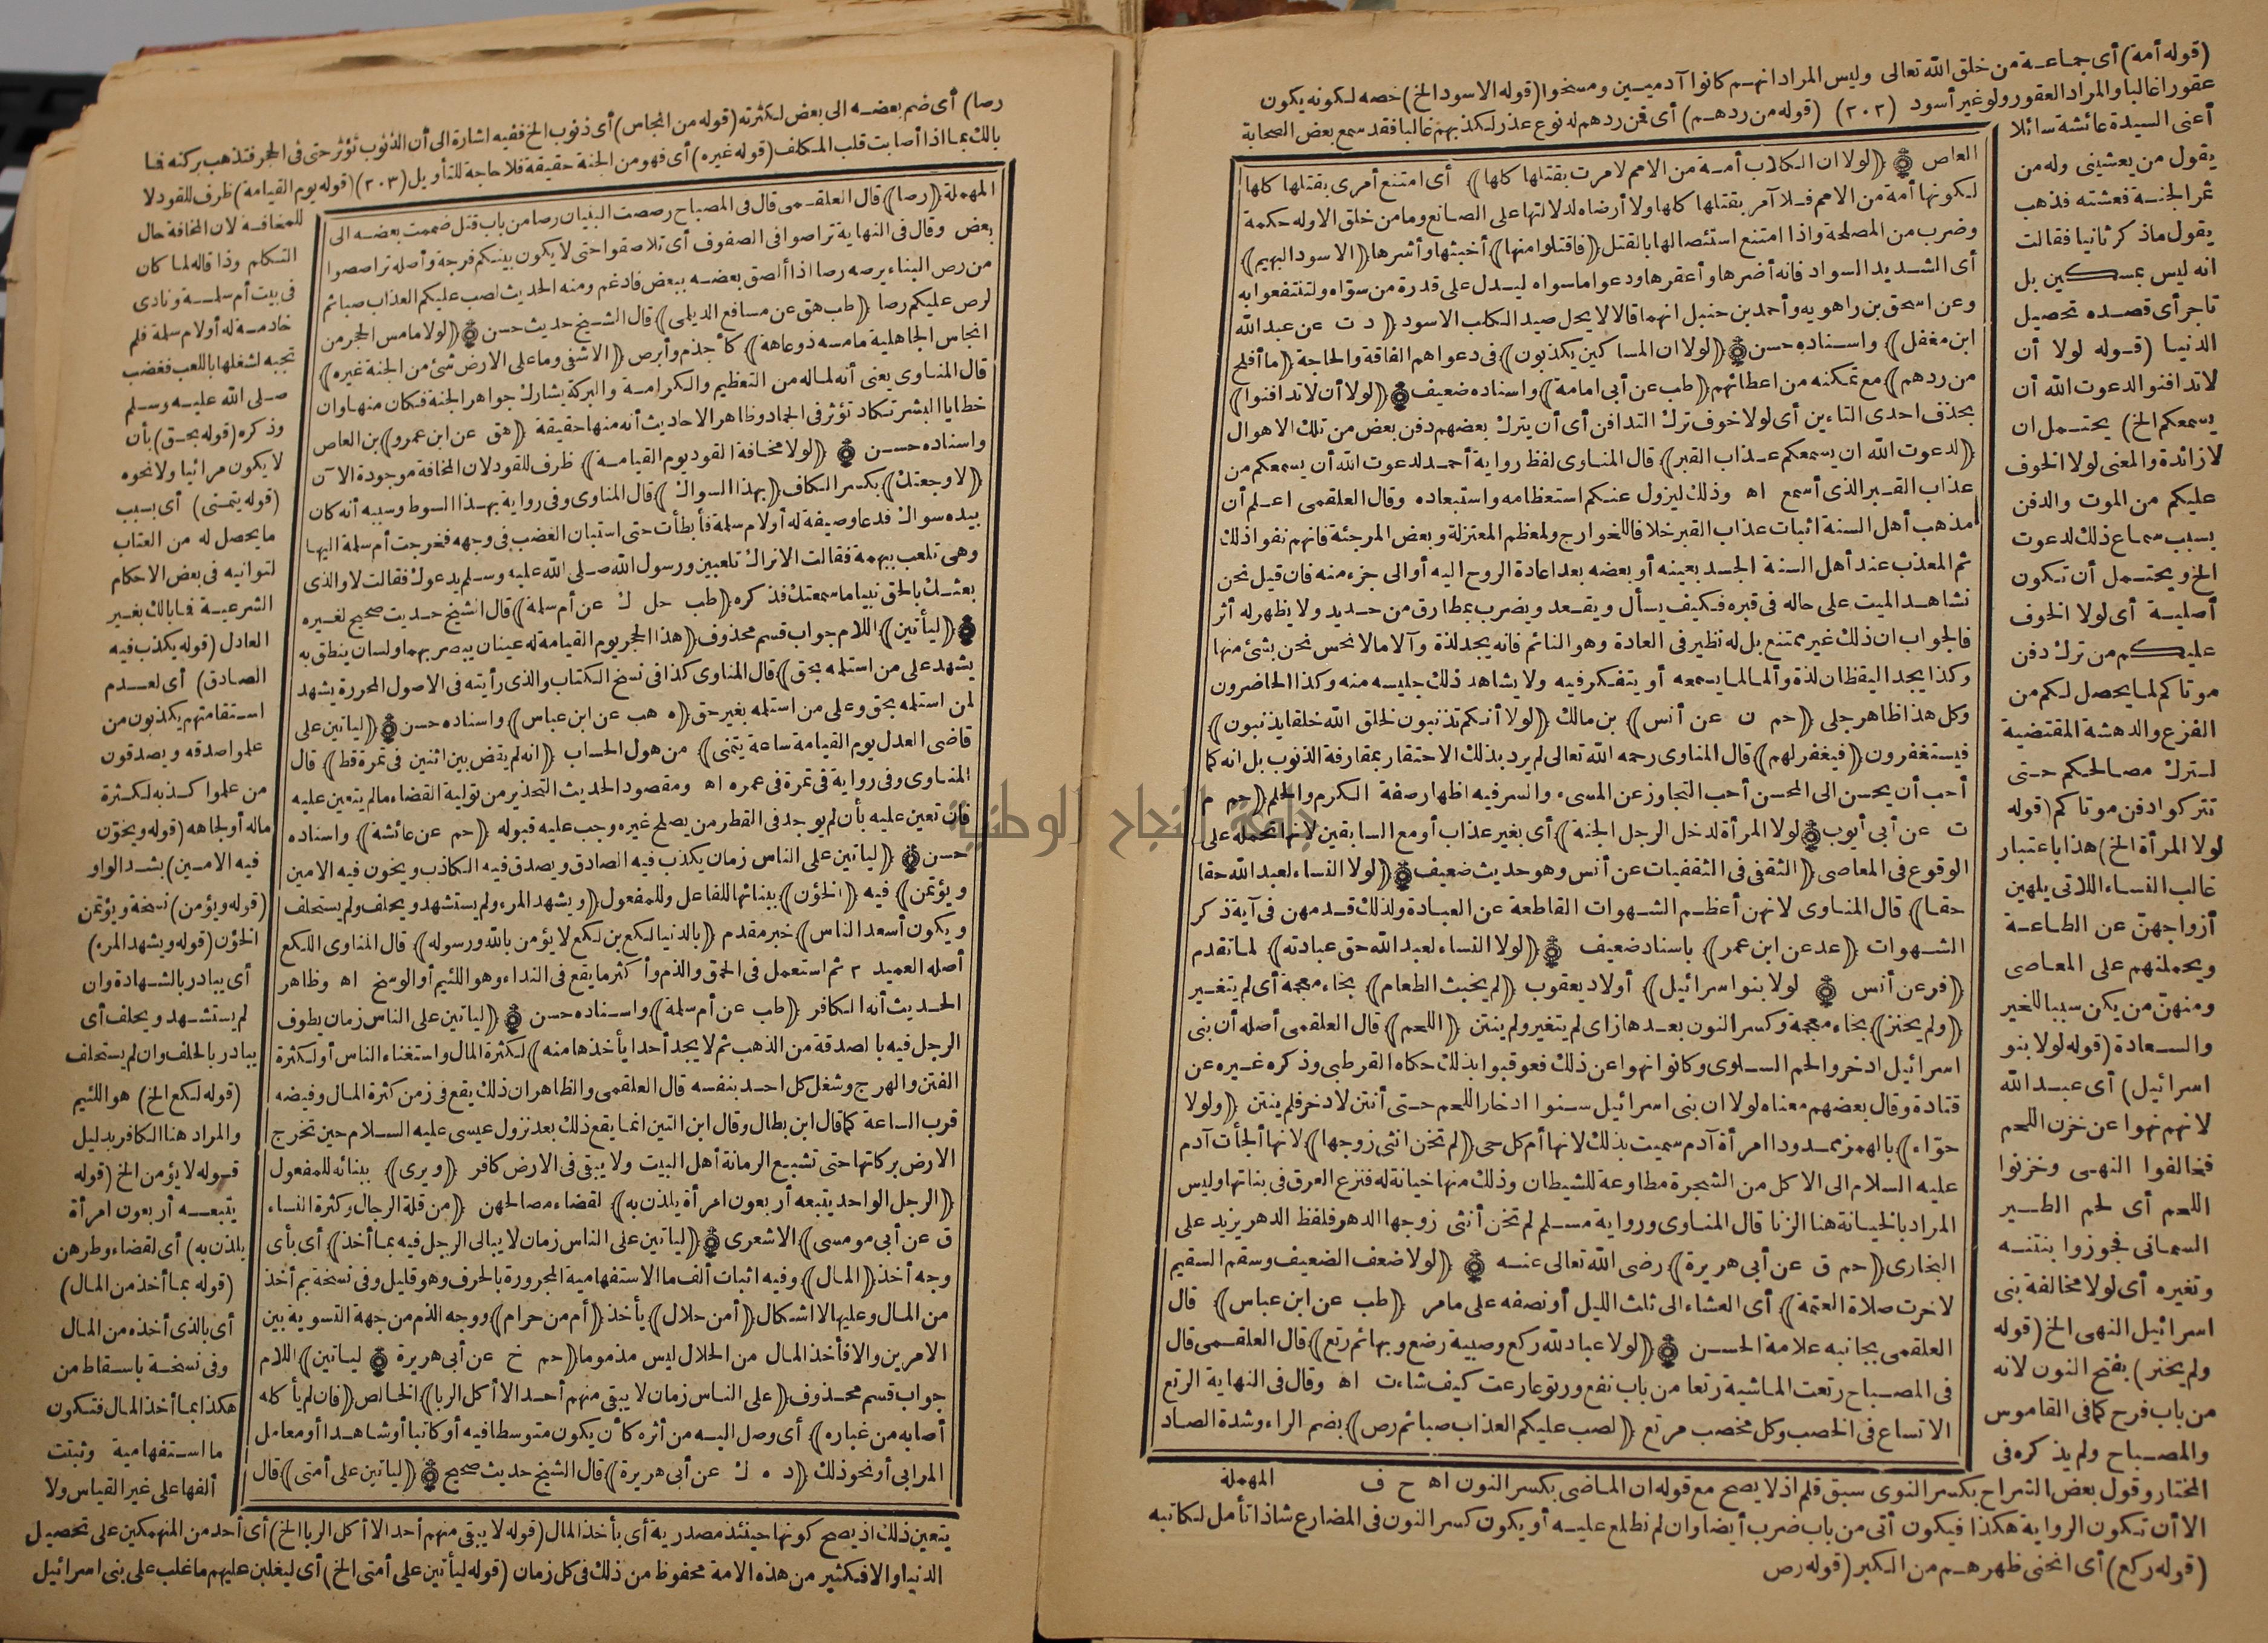 (قوله أمة) أى جماعة من خلق الله تعالى وليس المراد انهم كانوا آدميين ومسخوا (قوله الاسود الخ) خصه لكونه يكون
عقورا غالبا والمراد العقور ولو غير أسود (٢٠٢) (قوله من ردهم) أى فمن ردهم له نوع عذر لكذبهم غالبا فقد سمع بعض الصحابة
أعنى السيدة عائشة سائلا
يقول من يعشينى وله من
ثمر الجنة فعشته فذهب
يقول ماذكر ثانيا فقالت
انه ليس بمسكين بل
تاجر أى قصده تحصيل
الدنيا (قوله لولا أن
لاتدافنوا لدعوت الله أن
يسمعكم الخ) يحتمل ان
لازائدة والمعنى لولا الخوف
عليكم من الموت والدفن
بسبب سماع ذلك لدعوت
الخ ويحتمل أن تكون
أصلية أى لولا الخوف
عليكم من ترك دفن
موتاكم لما يحصل لكم من
الفزع والدهشة المقتضية
لترك مصالحكم حتى
تتركوا دفن موتاكم (قوله
لولا المرأة الخ) هذا باعتبار
غالب النساء اللاتى يلهين
أزواجهن عن الطاعة
ويحملنهم على المعاصى
ومنهن من يكن سببا للخير
والسعادة (قوله لولا بنو
اسرائيل) أى عبد الله
لانهم نهوا عن خزن اللحم
فخالفوا النهى وخزنوا
اللحم أى لحم الطير
السمانى فجوزوا بنتنه
وتغيره أى لولا مخالفة بنى
اسرائيل النهى الخ (قوله
ولم يخنز) بفتح النون لانه
من باب فرح كما فى القاموس
والمصباح ولم يذكره فى
العاص ﴿لولا ان الكلاب أمة من الامم لامرت بقتلها كلها﴾ أى امتنع أمرى بقتلها كلها
لكونها أمة من الامم فلا آمر بقتلها كلها ولا أرضاه لدلالتها على الصانع وما من خلق الاوله حكمة
وضرب من المصلحة واذا امتنع استئصالها بالقتل ﴿فاقتلوا منها﴾ أخبثها وأشرها ﴿الاسود البهيم﴾
أى الشديد السواد فانه أضرها وأعقرها ودعوا ما سواه ليدل على قدرة من سواه ولتنتفعوا به
وعن اسحق بن راهويه وأحمد بن حنبل انهما قالا لا يحل صيد الكلب الاسود ﴿د ت عن عبد الله
ابن مغفل﴾ واسناده حسن ﴿لولا ان المساكين يكذبون﴾ فى دعواهم الفاقة والحاجة ﴿ما أفلح
من ردهم﴾ مع تمكنه من اعطائهم ﴿طب عن أبى امامة﴾ واسناده ضعيف ﴿لولا أن لاتدافنوا﴾
بحذف احدى التاءين أى لولا خوف ترك التدافن أى أن يترك بعضهم دفن بعض من تلك الاهوال
﴿لدعوت الله ان يسمعكم عذاب القبر﴾ قال المناوى لفظ رواية أحمد لدعوت الله أن يسمعكم من
عذاب القبر الذى أسمع اه وذلك ليزول عنكم استعظامه واستبعاده وقال العلقمى اعلم أن
مذهب أهل السنة اثبات عذاب القبر خلافا للخوارج ولمعظم المعتزلة وبعض المرجئة فانهم نفوا ذلك
ثم المعذب عند أهل السنة الجسد بعينه أو بعضه بعد اعادة الروح اليه أو الى جزء منه فان قيل نحن
نشاهد الميت على حاله فى قبره فكيف يسأل ويقعد ويضرب بمطارق من حديد ولا يظهر له أثر
فالجواب ان ذلك غير ممتنع بل له نظير فى العادة وهو النائم فانه يجد لذة وآلاما لا نحس نحن بشئ منها
وكذا يجد اليقظان لذة وألما لما يسمعه أو يتفكر فيه ولا يشاهد ذلك جليسه منه وكذا الحاضرون
وكل هذا ظاهر جلى ﴿حم ن عن أنس﴾ بن مالك ﴿لولا أنكم تذنبون لخلق الله خلقا يذنبون﴾
فيستغفرون ﴿فيغفر لهم﴾ قال المناوى رحمه الله تعالى لم يرد بذلك الاحتقار بمقارفة الذنوب بل انه كما
أحب أن يحسن الى المحسن أحب التجاوز عن المسىء والسر فيه اظهار صفة الكرم والحلم ﴿حم م
ت عن أبى أيوب ﴿لولا المرأة لدخل الرجل الجنة﴾ أى بغير عذاب أو مع السابقين لانها تحمله على
الوقوع فى المعاصى ﴿الثقفى فى الثقفيات عن أنس وهو حديث ضعيف ﴿لولا النساء لعبد الله حقا
حقا﴾ قال المناوى لانهن أعظم الشهوات القاطعة عن العبادة ولذلك قدمهن فى آية ذكر
الشهوات ﴿عد عن ابن عمر﴾ باسناد ضعيف ﴿لولا النساء لعبد الله حق عبادته﴾ لما تقدم
﴿فر عن أنس لولا بنو اسرائيل﴾ أولاد يعقوب ﴿لم يخبث الطعام﴾ بخاء معجمة أى لم يتغير
﴿ولم يخنز﴾ بخاء معجمة وكسر النون بعدها زاى لم يتغير ولم ينتن ﴿اللحم﴾ قال العلقمى أصله أن بنى
اسرائيل ادخروا لحم السلوى وكانوا نهوا عن ذلك فعوقبوا بذلك حكاه القرطبى وذكره غيره عن
قتادة وقال بعضهم معناه لولا ان بنى اسرائيل سنوا ادخار اللحم حتى أنتن لادخر فلم ينتن ﴿ولولا
حواء﴾ بالهمز ممدودا امرأة آدم سميت بذلك لانها أم كل حى ﴿لم تخن انثى زوجها﴾ لانها ألجأت آدم
عليه السلام الى الاكل من الشجرة مطاوعة للشيطان وذلك منها خيانة له فنزع العرق فى بناتها وليس
المراد بالخيانة هنا الزنا قال المناوى ورواية مسلم لم تخن أنثى زوجها الدهر فلفظ الدهر يزيد على
البخارى ﴿حم ق عن أبى هريرة﴾ رضى الله تعالى عنه ﴿لولا ضعف الضعيف وسقم السقيم
لاخرت صلاة العتمة﴾ أى العشاء الى ثلث الليل أو نصفه على ما مر ﴿طب عن ابن عباس﴾ قال
العلقمى بجانبه علامة الحسن ﴿لولا عباد لله ركع وصبية رضع وبهائم رتع﴾ قال العلقمى قال
فى المصباح رتعت الماشية رتعا من باب نفع ورتوعا رعت كيف شاءت اه وقال فى النهاية الرتع
الاتساع فى الخصب وكل مخصب مرتع ﴿لصب عليكم العذاب صبا ثم رص﴾ بضم الراء وشدة الصاد
المهملة
المختار وقول بعض الشراح بكسر النوى سبق قلم اذ لا يصح مع قوله ان الماضى بكسر النون اه ح ف
الا أن تكون الرواية هكذا فيكون أتى من باب ضرب أيضا وان لم نطلع عليه أو يكون كسر النون فى المضارع شاذا تأمل لكاتبه
(قوله ركع) أى انحنى ظهرهم من الكبر (قوله رص
رصا) أى ضم بعضه الى بعض لكثرته (قوله من انجاس) أى ذنوب الخ ففيه اشارة الى أن الذنوب تؤثر حتى فى الحجر فتذهب بركته فما
بالك بما اذا أصابت قلب المكلف (قوله غيره) أى فهو من الجنة حقيقة فلا حاجة للتأويل (٢٠٣) (قوله يوم القيامة) ظرف للقود لا
للمخافة لان المخافة حال
التكلم وذا قاله لما كان
فى بيت أم سلمة ونادى
خادمة له أولام سلمة فلم
تجبه لشغلها باللعب فغضب
صلى الله عليه وسلم
وذكره (قوله بحق) بأن
لا يكون مرائيا ولا نحوه
(قوله يتمنى) أى بسبب
ما يحصل له من العتاب
لتوانيه فى بعض الاحكام
الشرعية فما بالك بغير
العادل (قوله يكذب فيه
الصادق) أى لعدم
استقامتهم يكذبون من
علموا صدقه ويصدقون
من علموا كذبه لكثرة
ماله أو لجاهه (قوله ويخون
فيه الامين) بشد الواو
(قوله ويؤمن) نسخة ويؤتمن
الخؤن (قوله ويشهد المرء)
أى يبادر بالشهادة وان
لم يستشهد ويحلف أى
يبادر بالحلف وان لم يستحلف
(قوله لكع الخ) هو اللئيم
والمراد هنا الكافر بدليل
قوله لا يؤمن الخ (قوله
يتبعه أربعون امرأة
يلذن به) أى لقضاء وطرهن
(قوله بما أخذ من المال)
أى بالذى أخذه من المال
وفى نسخة باسقاط من
هكذا بما أخذ المال فتكون
ما استفهامية وثبتت
ألفها على غير القياس ولا
المهملة ﴿رصا﴾ قال العلقمى قال فى المصباح رصصت البنيان رصا من باب قتل ضممت بعضه الى
بعض وقال فى النهاية تراصوا فى الصفوف أى تلاصقوا حتى لا يكون بينكم فرجة وأصله تراصصوا
من رص البناء يرصه رصا اذا ألصق بعضه ببعض فادغم ومنه الحديث لصب عليكم العذاب صبا ثم
لرص عليكم رصا ﴿طب هق عن مسافع الديلى﴾ قال الشيخ حديث حسن ﴿لولا ما مس الحجر من
انجاس الجاهلية ما مسه ذو عاهة﴾ كأجذم وأبرص ﴿الاشفى وما على الارض شئ من الجنة غيره﴾
قال المناوى يعنى أنه لما له من التعظيم والكرامة والبركة يشارك جواهر الجنة فكان منها وان
خطايا البشر تكاد تؤثر فى الجماد وظاهر الاحاديث أنه منها حقيقة ﴿هق عن ابن عمرو﴾ بن العاص
واسناده حسن ﴿لولا مخافة القود يوم القيامة﴾ ظرف للقود لان المخافة موجودة الآن
﴿لاوجعتك﴾ بكسر الكاف ﴿بهذا السواك﴾ قال المناوى وفى رواية بهذا السوط وسببه أنه كان
بيده سواك فدعا وصيفة له أولام سلمة فأبطأت حتى استبان الغضب فى وجهه فخرجت أم سلمة اليها
وهى تلعب ببهيمة فقالت الاتراك تلعبين ورسول الله صلى الله عليه وسلم يدعوك فقالت لا والذى
بعثك بالحق نبيا ما سمعتك فذكره ﴿طب حل ك عن أم سلمة﴾ قال الشيخ حديث صحيح لغيره
﴿ليأتين﴾ اللام جواب قسم محذوف ﴿هذا الحجر يوم القيامة له عينان يبصر بهما ولسان ينطق به
يشهد على من استلمه بحق﴾ قال المناوى كذا فى نسخ الكتاب والذى رأيته فى الاصول المحررة يشهد
لمن استلمه بحق وعلى من استلمه بغير حق ﴿ه هب عن ابن عباس﴾ واسناده حسن ﴿لياتين على
قاضى العدل يوم القيامة ساعة يتمنى﴾ من هول الحساب ﴿انه لم يقض بين اثنين فى تمرة قط﴾ قال
المناوى وفى رواية فى تمرة فى عمره اه ومقصود الحديث التحذير من تولية القضاء ما لم يتعين عليه
فان تعين عليه بأن لم يوجد فى القطر من يصلح غيره وجب عليه قبوله ﴿حم عن عائشة﴾ واسناده
حسن ﴿لياتين على الناس زمان يكذب فيه الصادق ويصدق فيه الكاذب ويخون فيه الامين
ويؤتمن﴾ فيه ﴿الخؤن﴾ ببنائها للفاعل وللمفعول ﴿ويشهد المرء ولم يستشهد ويحلف ولم يستحلف
ويكون أسعد الناس﴾ خبر مقدم ﴿بالدنيا لكع بن لكع لا يؤمن بالله ورسوله﴾ قال المناوى اللكع
أصله العميد ٢ ثم استعمل فى الحمق والذم وأكثر ما يقع فى النداء وهو اللئيم أو الوسخ اه وظاهر
الحديث أنه الكافر ﴿طب عن أم سلمة﴾ واسناده حسن ﴿لياتين على الناس زمان يطوف
الرجل فيه بالصدقة من الذهب ثم لا يجد أحدا يأخذها منه﴾ لكثرة المال واستغناء الناس أو لكثرة
الفتن والهرج وشغل كل احد بنفسه قال العلقمى والظاهر ان ذلك يقع فى زمن كثرة المال وفيضه
قرب الساعة كما قال ابن بطال وقال ابن التين انما يقع ذلك بعد نزول عيسى عليه السلام حين تخرج
الارض بركاتها حتى تشبع الرمانة أهل البيت ولا يبقى فى الارض كافر ﴿ويرى﴾ ببنائه للمفعول
﴿الرجل الواحد يتبعه أربعون امرأة يلذن به﴾ لقضاء مصالحهن ﴿من قلة الرجال وكثرة النساء
ق عن أبى موسى﴾ الاشعرى ﴿لياتين على الناس زمان لا يبالى الرجل فيه بما أخذ﴾ أى بأى
وجه أخذ ﴿المال﴾ وفيه اثبات ألف ما الاستفهامية المجرورة بالحرف وهو قليل وفى نسخة بم أخذ
من المال وعليها لا اشكال ﴿أمن حلال﴾ يأخذ ﴿أم من حرام﴾ ووجه الذم من جهة التسوية بين
الامرين والا فأخذ المال من الحلال ليس مذموما ﴿حم خ عن أبى هريرة لياتين﴾ اللام
جواب قسم محذوف ﴿على الناس زمان لا يبقى منهم أحد الا أكل الربا﴾ الخالص ﴿فان لم يأكله
أصابه من غباره﴾ أى وصل اليه من أثره كأن يكون متوسطا فيه أو كاتبا أو شاهدا أو معامل
المرابى أو نحو ذلك ﴿د ه ك عن أبى هريرة﴾ قال الشيخ حديث صحيح ﴿لياتين على أمتى﴾ قال
يتعين ذلك اذ يصح كونها حينئذ مصدرية أى بأخذ المال (قوله لا يبقى منهم أحد الا أكل الربا الخ) أى أحد من المنهمكين على تحصيل
الدنيا والا فكثير من هذه الامة محفوظ من ذلك فى كل زمان (قوله ليأتين على أمتى الخ) أى ليغلبن عليهم ما غلب على بنى اسرائيل
جامعة النجاح الوطنية